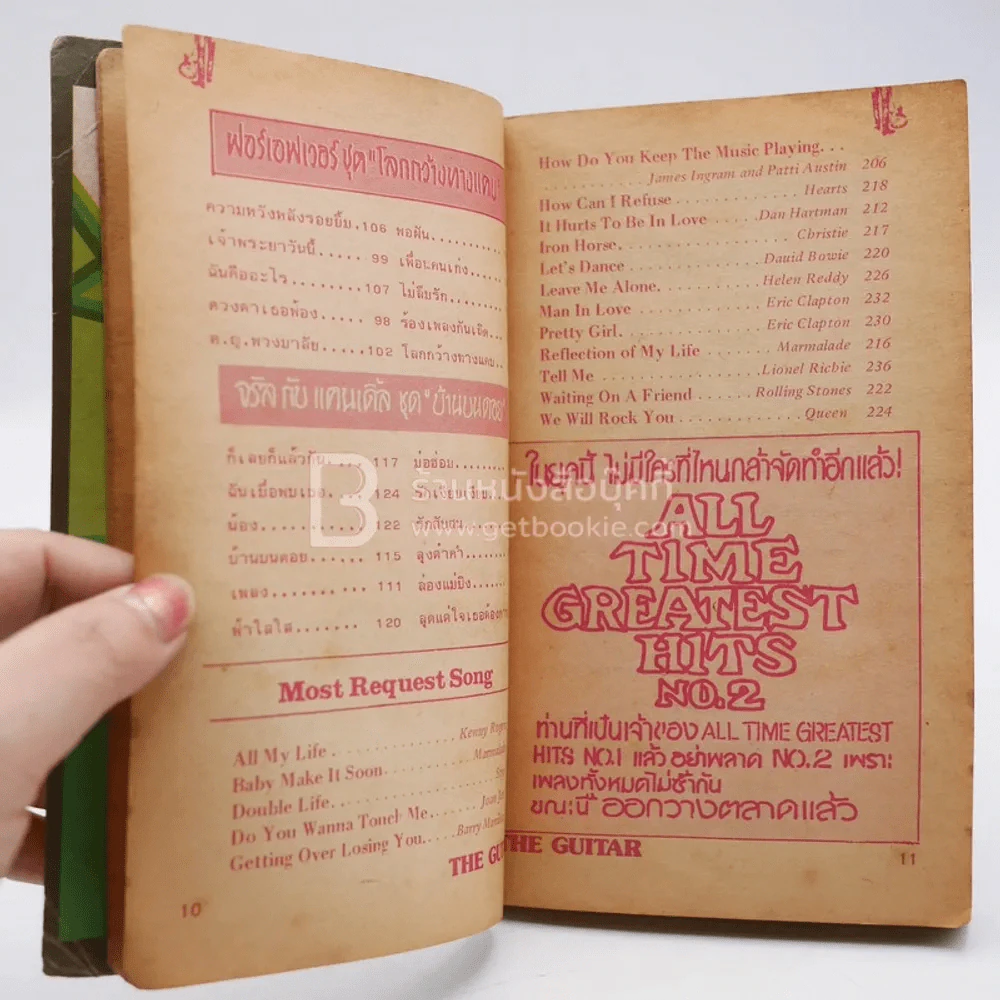 ฟอร์เอฟเวอร์ ชุด "โลกกว้างทางแคบ"
ความหวังหลังรอยยิ้ม.106 พอฝัน..........
เจ้าพระยาวันนี้..... 99 เพื่อนคนเก่ง......
ฉันคืออะไร........107 ไม่ลืมรัก........
ดวงตาเธอฟ้อง..... 98 ร้องเพลงกันเถิด...
ด.ญ.พวงมาลัย.....102 โลกกว้างทางแคบ..
จรัล กับ แคนเดิ้ล ชุด "บ้านบนดอย"
ก็เลยก็แล้วกัน.... 117 บ่อฮ่อม........
ฉันเมื่อพบเธอ... 124
น้อง............ 122
บ้านบนดอย...... 115 ลุงต๋าคำ........
เพลง........... 111 ล่องแม่ปิง......
ฟ้าใสใส....... 120 สุดแต่ใจเธอต้องการ
Most Request Song
All My Life . . . . . . . . . . Kenny Rogers
Baby Make It Soon. . . . . . . Marmalade
Double Life. . . . . . . . . .
Do You Wanna Touch Me. . . . . Joan
Getting Over Losing You. . . . . Barry
THE GU
10
How Do You Keep The Music Playing. . .
. . . . . . . . . . James Ingram and Patti Austin 206
How Can I Refuse . . . . . . . . . . Hearts 218
It Hurts To Be In Love . . . . . Dan Hartman 212
Iron Horse. . . . . . . . . . . . . Christie 217
Let's Dance . . . . . . . . . . . David Bowie 220
Leave Me Alone. . . . . . . . . Helen Reddy 226
Man In Love . . . . . . . . . . Eric Clapton 232
Pretty Girl. . . . . . . . . . . Eric Clapton 230
Reflection of My Life . . . . . . . Marmalade 216
Tell Me . . . . . . . . . . . . .Lionel Richie 236
Waiting On A Friend . . . . . Rolling Stones 222
We Will Rock You . . . . . . . . . . Queen 224
ในยุคนี้ ไม่มีใครที่ไหนกล้าจัดทำอีกแล้ว!
ALL
TIME
GREATEST
HITS
NO.2
ท่านที่เป็นเจ้าของ ALL TIME GREATEST
HITS NO.1 แล้ว อย่าพลาด NO.2 เพราะ
เพลงทั้งหมดไม่ซ้ำกัน
ขณะนี้ ออกวางตลาดแล้ว
THE GUITAR
11
B
ร้านหนังสือบุ๊คกี้
www.getbookie.com